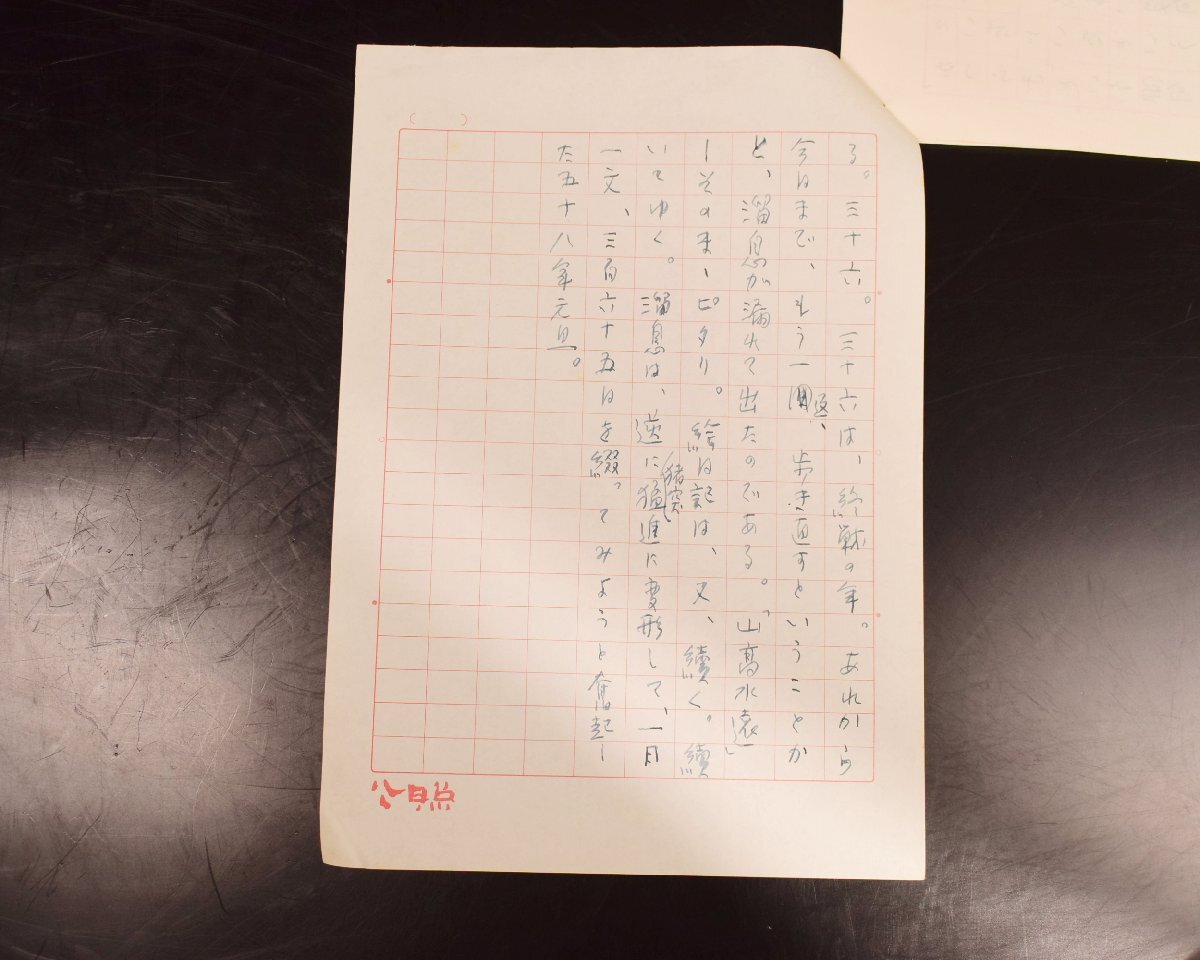 る。三十六。三十六は、終戦の年。あれから
今日まで、もう一返、歩き直すということか
と、溜息が漏れて出たのである。「山高水遠」
ーそのまゝピタリ。絵日記は、又、續く。續
いてゆく。溜息は、逆に猪突猛進に変形して、一日
一文、三百六十五日を綴ってみようと奮起し
た五十八年元旦。